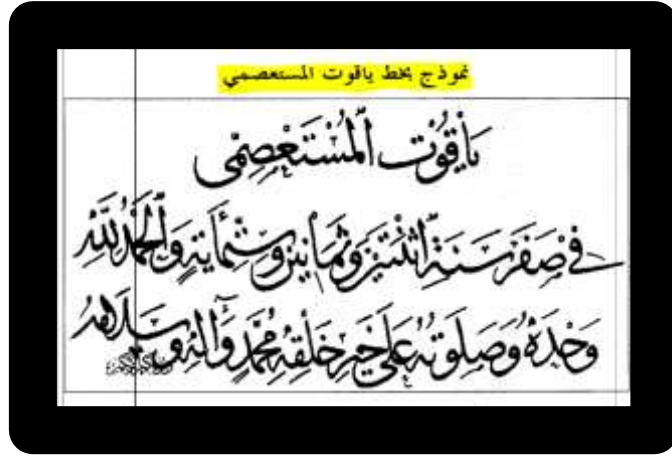 نموذج بخط ياقوت المستعصمي
يَاقُوْت المُسْتَعْصِمِي
في صَفَر سَنَةِ اثْنَتَيْن وَثَمَانِين وَسِتّمِأَيَةٍ وَالحَمْدُ لِلّهِ
وَحْدَهُ وَصَلَوتُهُ عَلَى خَيْرِ خَلْقِهِ مُحَمَّدٍ وَآلِهِ وَسَلَامُهُ